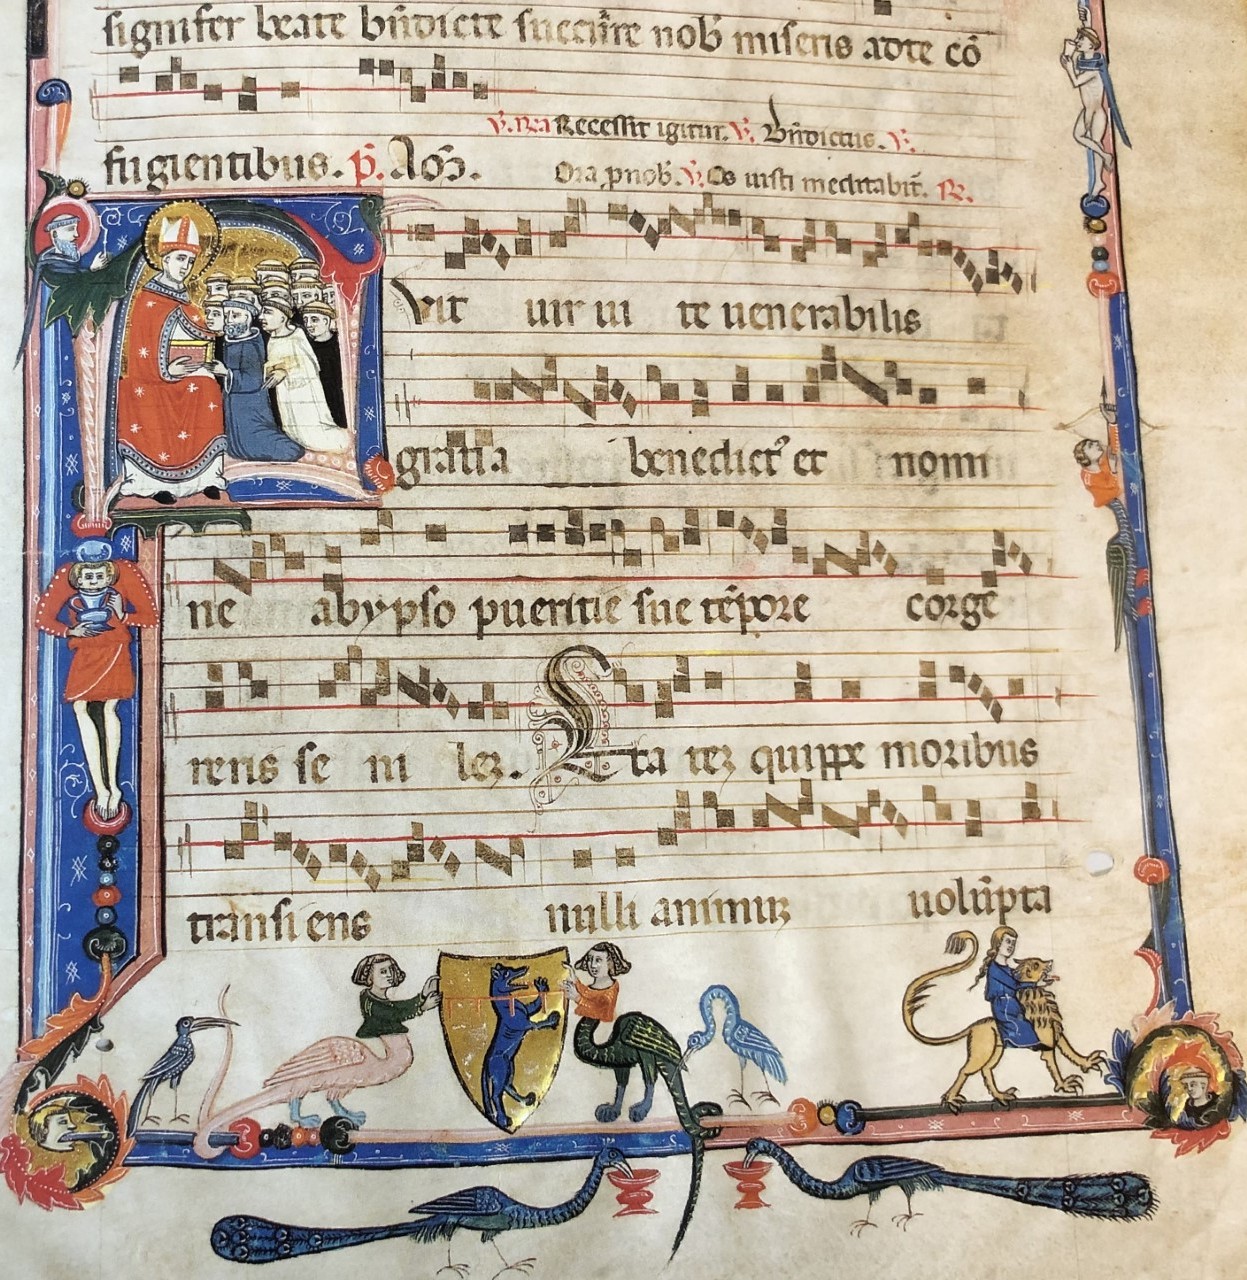 signifer beate bn̄dicte succurre nob̄ miseris adte cō
ỹ. Ra Recessit igitur. ỹ. Bn̄dictus. ỹ.
fugientibus. p̄.
Ora p nob̄. ỹ. Os iusti meditabit̄. R.
Vit uir ui te uenerabilis
gratia benedictꝰ et nomi
ne abypso pueritie sue tēpore cor ge
rens se ni leꝫ. Eta teꝫ quippe moribus
transi ens nulli animuꝫ uolūpta